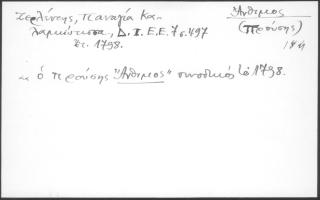 Ζερλέντης, Παναγία Κα-
λαμιώτισσα, Δ. Ι. Ε. Ε. 7 σ. 497
ἔτ. 1798.
Ἄνθιμος
(Προύσης)
« ὁ Προύσης "Ἄνθιμος" συνοδικὸς 1798.